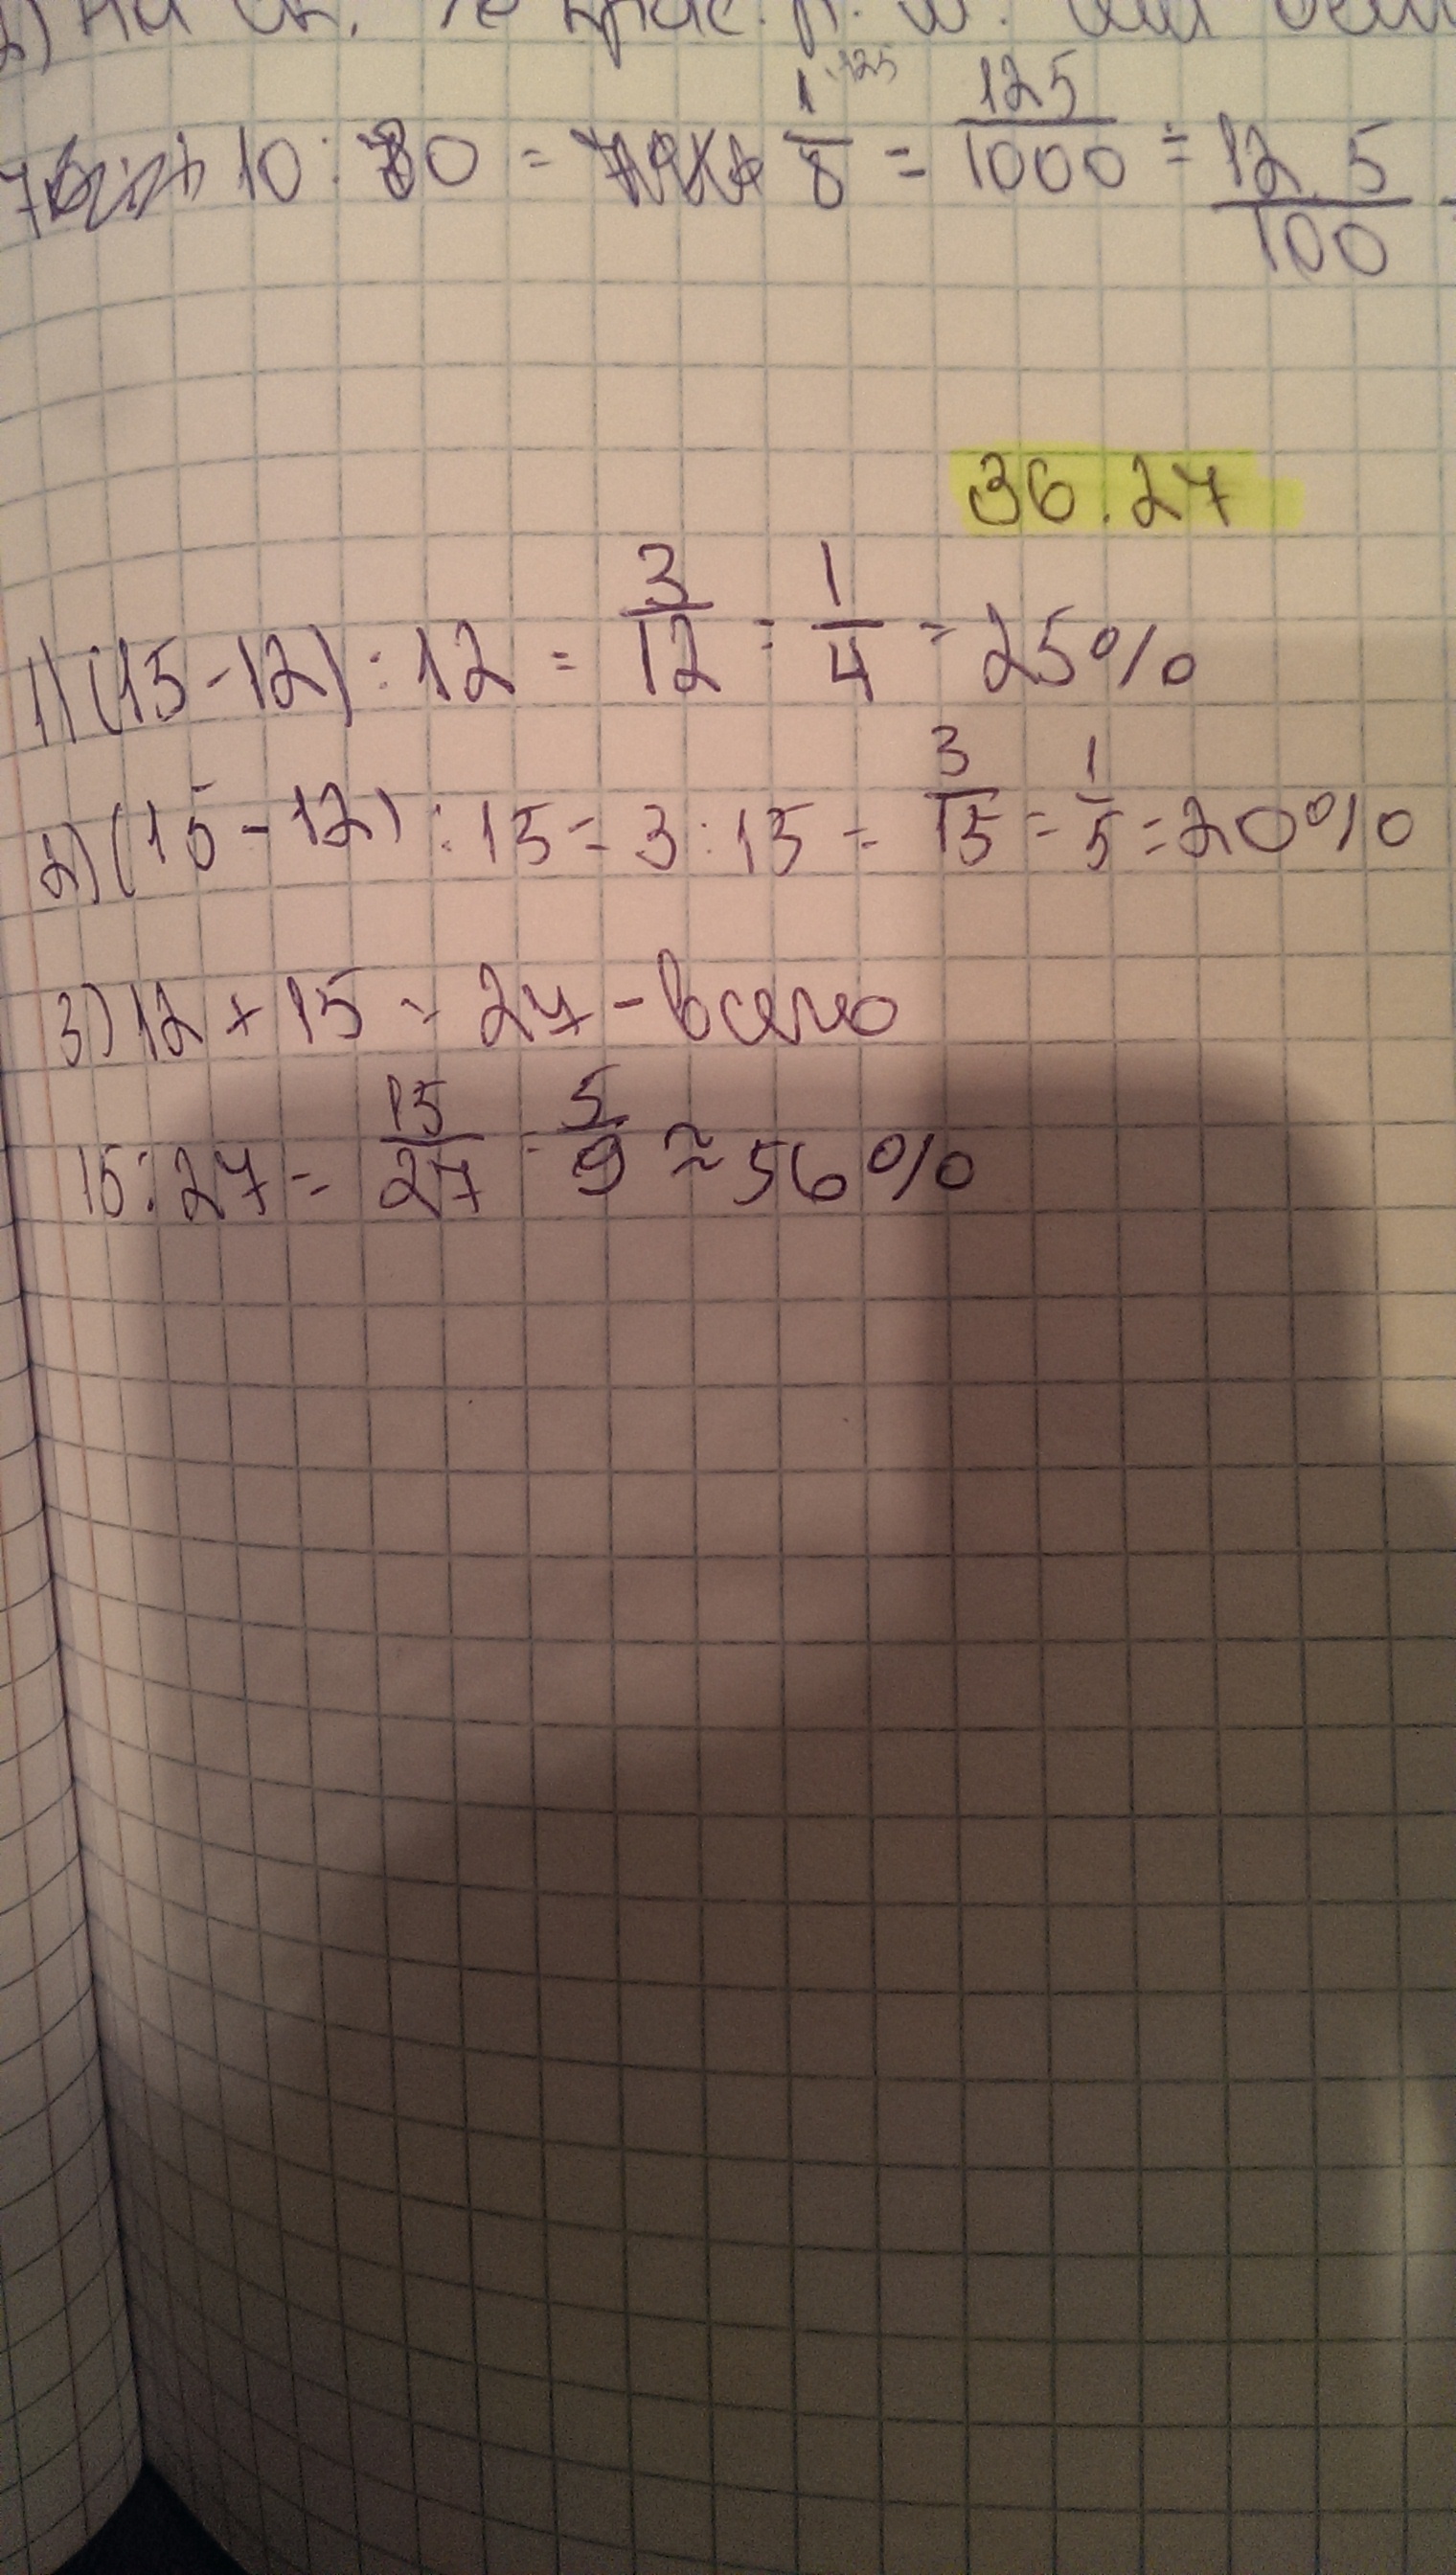 2) На ск. % крас. р. ш.
10 : 80 = 1/8 ·125 = 125/1000 = 12,5/100
36.27
1) (15-12) : 12 = 3/12 = 1/4 = 25%
2) (15-12) : 15 = 3:15 = 3/15 = 1/5 = 20%
3) 12 + 15 = 27 - всего
15:27 = 15/27 = 5/9 ≈ 56%